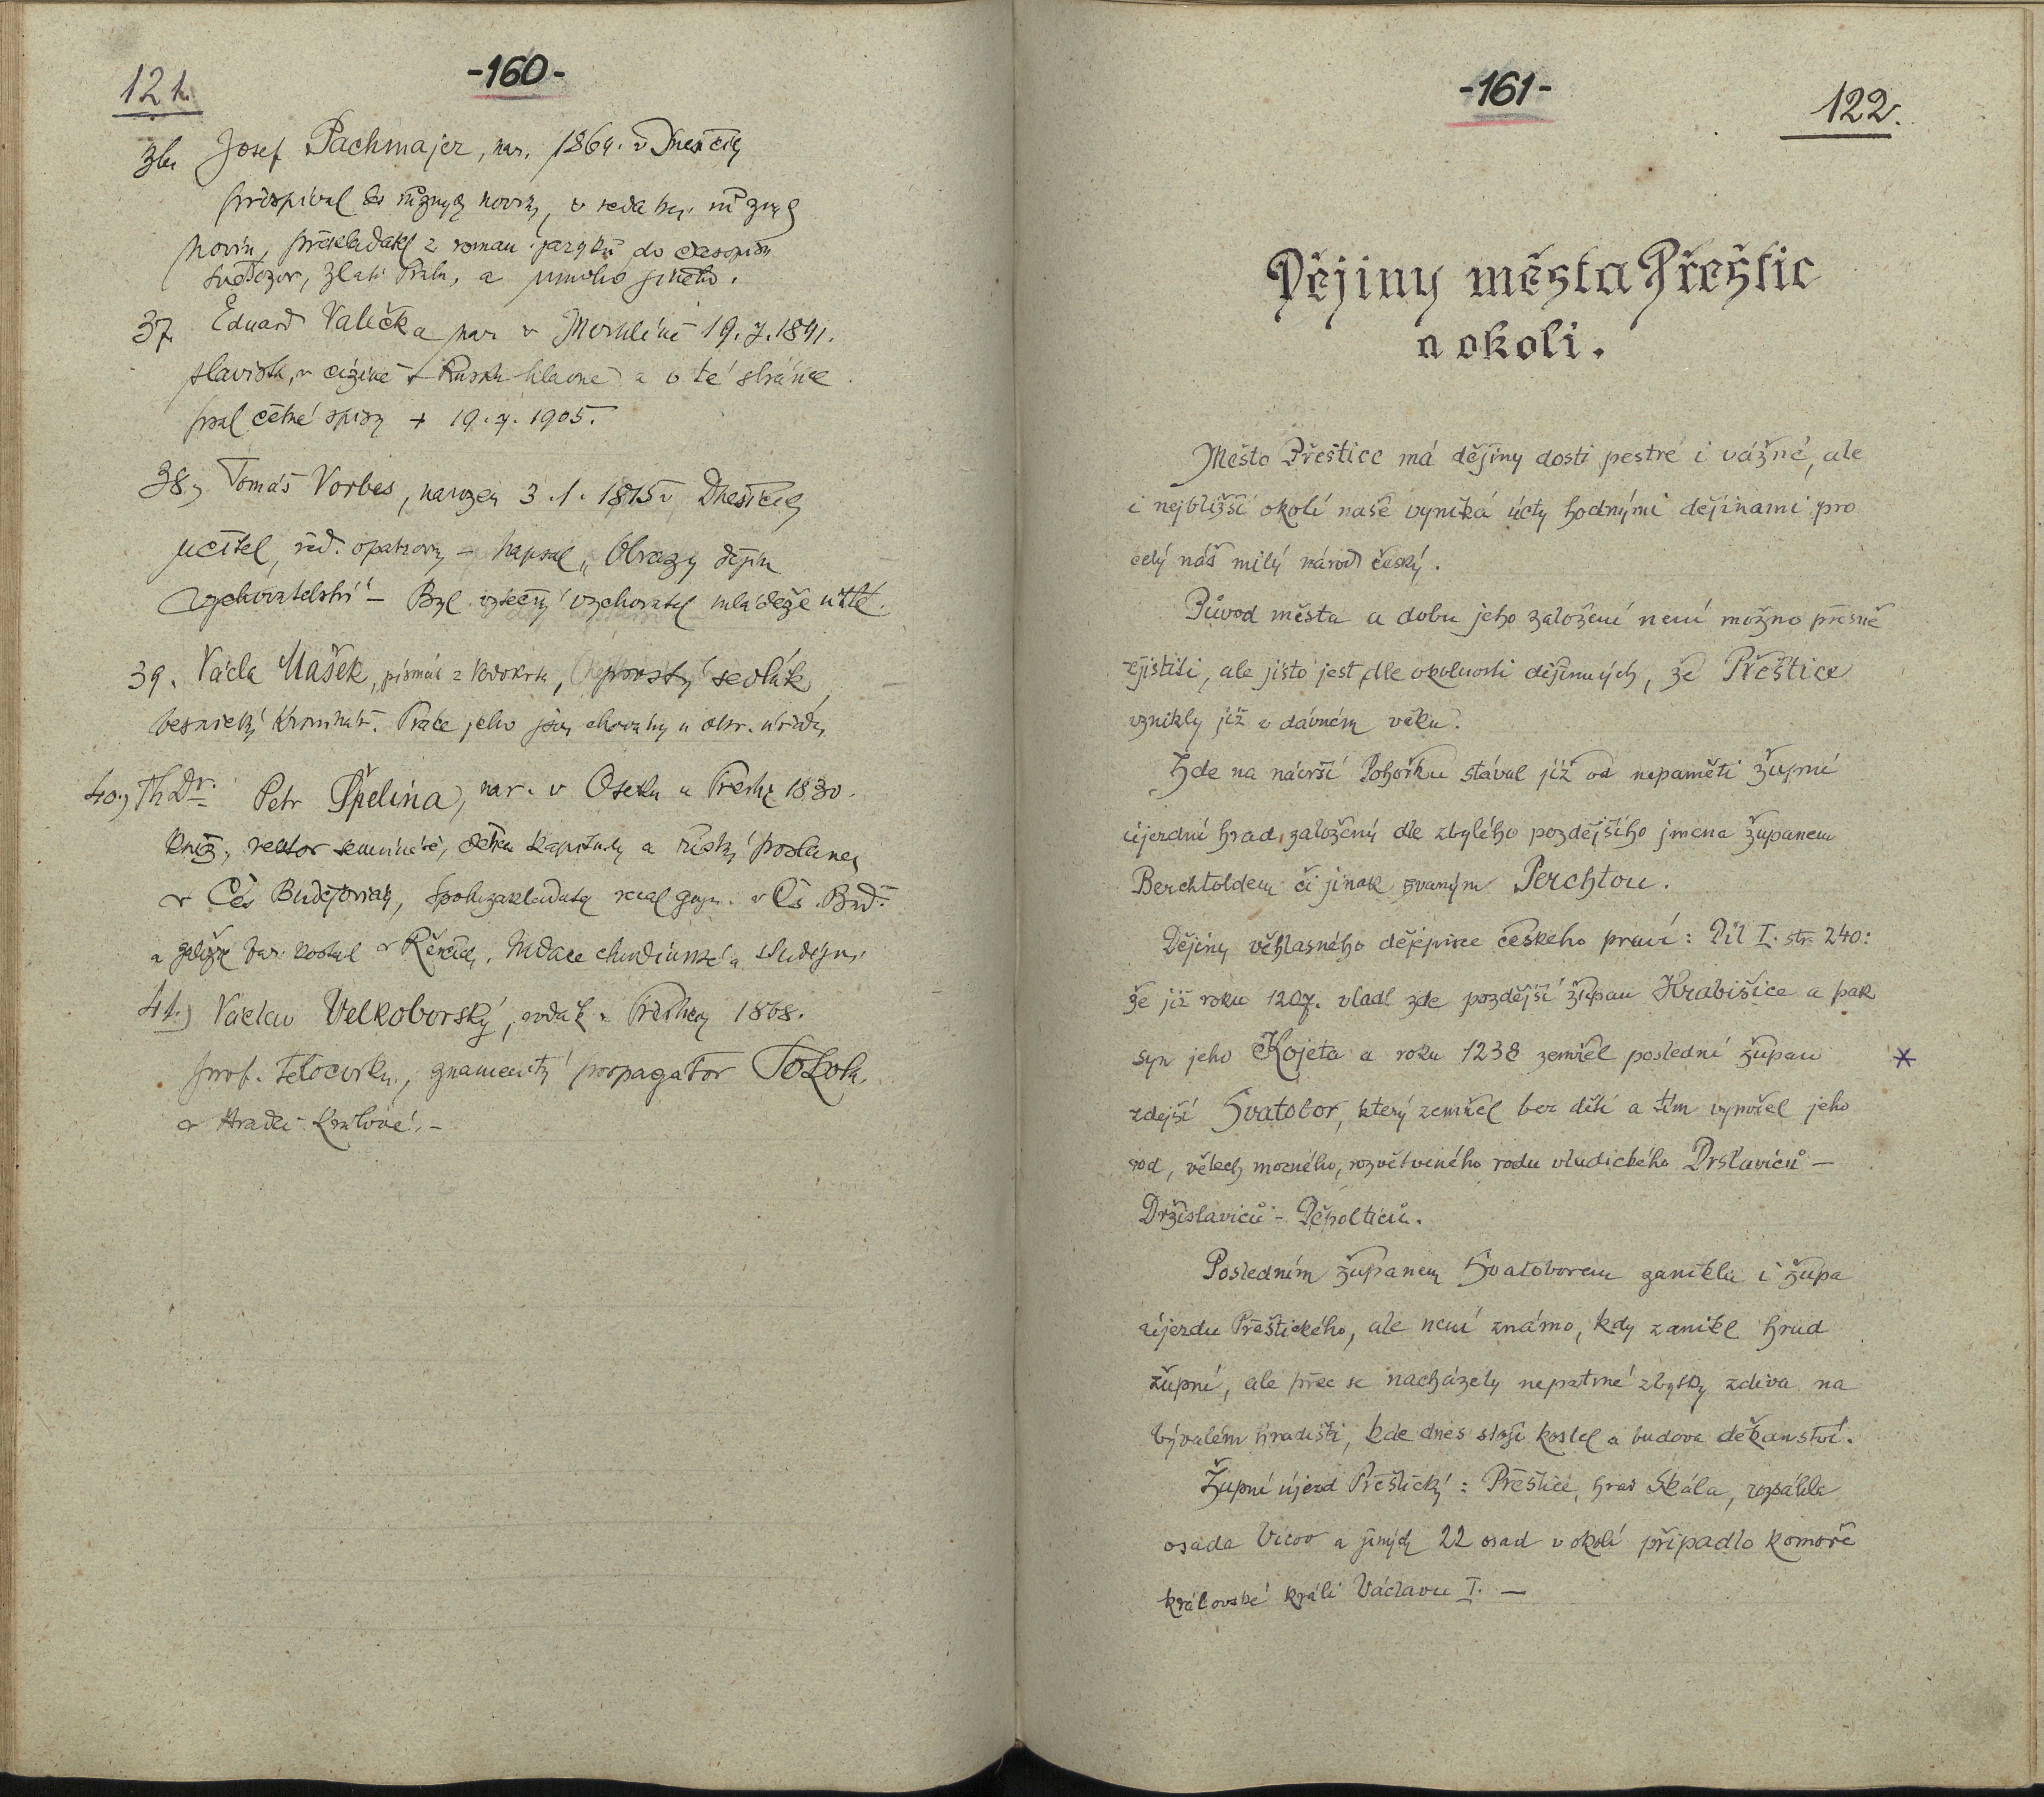 121.
-160-
36. Josef Pachmajer, nar. 1864. v Dnešicích
přispíval do různých novin, v redakci různých
novin, překladatel z roman. jazyků do časopisů
Světozor, Zlatá Praha, a mnoho jiného.
37. Eduard Valečka nar. v Merklíně 19.7.1841.
slavista, v cizině v Rusku hlavně a v té stránce
psal četné spisy + 19.7.1905.
38, Tomáš Vorbes, narozen 3.1.1815 v Dnešicích
učitel, řed. opatrovny – napsal „Obrazy dějin
vychovatelství“ – Byl výtečný vychovatel mládeže útlé.
39. Václa Mašek, písmák z Vodokrt, sedlák,
kronikář. Práce jeho jsou chovány u obec. úřadu,
40.) ThDr. Petr Špelina, nar. v Oseku u Přeštic 1830.
kněz, rektor semináře, děkan kapituly a říšský poslanec
v Čes. Budějovicích, spoluzakladatel real. gymn. v Čs. Bud.
a založil kostel v Řenčích, nadace chudinské a studijní
41.) Václav Velkoborský, rodák z Přeštic 1868.
prof. tělocviku, znamenitý propagátor Sokola
v Hradci Králové. –
-161-
122.
Dějiny města Přeštic
a okolí.
Město Přeštice má dějiny dosti pestré i vážné, ale
i nejbližší okolí naše vyniká úcty hodnými dějinami pro
celý náš milý národ český.
Původ města a dobu jeho založení není možno přesně
zjistiti, ale jisto jest, dle okolností dějinných, že Přeštice
vznikly již v dávném věku.
Zde na návrší Pohořku stával již od nepaměti župní
újezdní hrad, založený dle zbylého pozdějšího jména županem
Berchtoldem či jinak zvaným Perchtou.
Dějiny věhlasného dějepisce českého praví: Díl I. str. 240:
že již roku 1207. vládl zde pozdější župan Hrabišice a pak
syn jeho Kojeta a roku 1238 zemřel poslední župan *
zdejší Svatobor, který zemřel bez dětí a tím vymřel jeho
rod, větech mocného, rozvětveného rodu vladického Drslaviců –
Držislaviců – Děpolticů.
Posledním županem Svatoborem zanikla i župa
újezdu Přeštického, ale není známo, kdy zanikl hrad
župní, ale přec se nacházely nepatrné zbytky zdiva na
bývalém hradišti, kde dnes stojí kostel a budova děkanství.
Župní újezd Přeštický: Přeštice, hrad Skála, rozsáhlá
osada Vícov a jiných 22 osad v okolí připadlo komoře
královské králi Václavu I. –